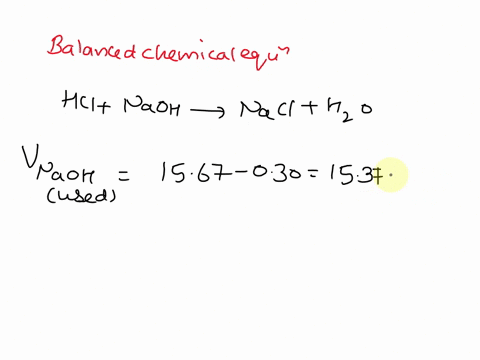 Balanced chemical equⁿ
HCl + NaOH → NaCl + H₂O
V NaOH (used) = 15.67 - 0.30 = 15.37